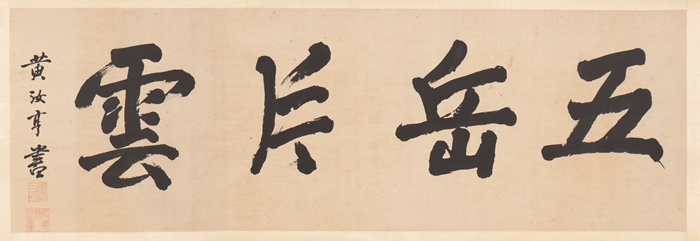 五岳片雲
黃汝亨書